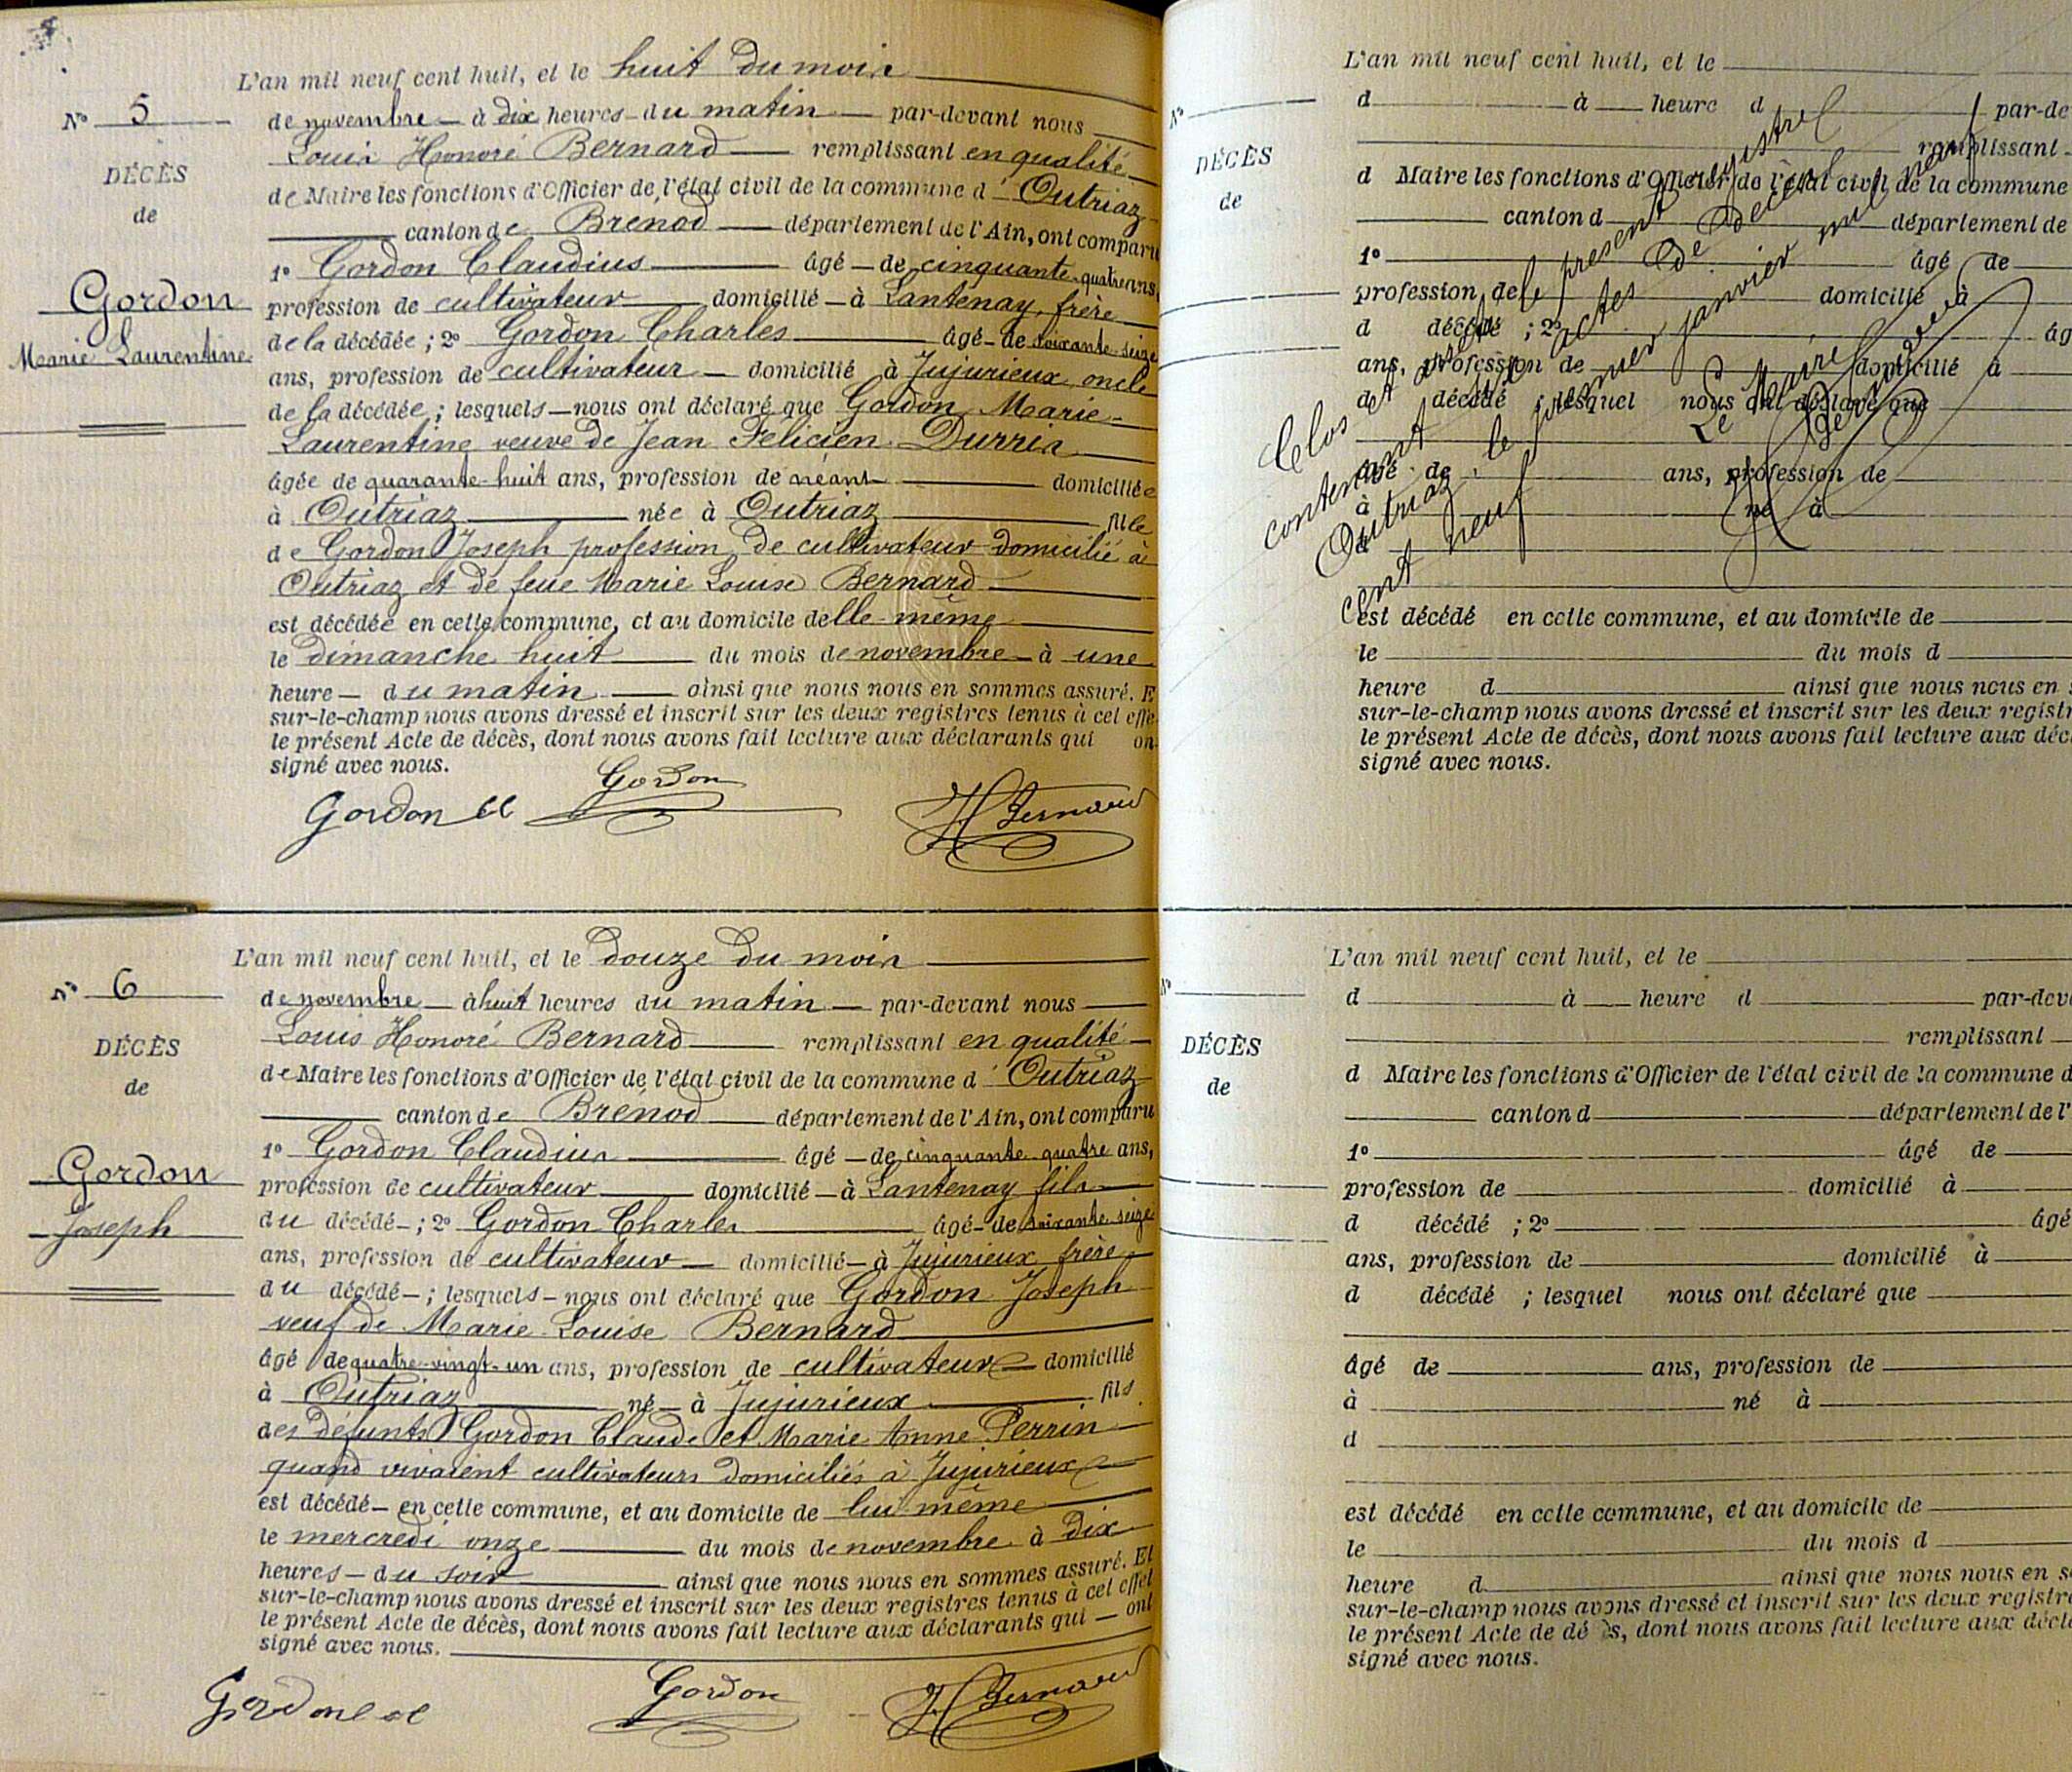 L'an mil neuf cent huit, et le huit du mois
N° 5
de novembre à dix heures du matin par-devant nous
Louis Honoré Bernard remplissant en qualité
DÉCÈS
de Maire les fonctions d'Officier de l'état civil de la commune d'Outriaz
de
canton de Brenod département de l'Ain, ont comparu
1° Gordon Claudius âgé de cinquante-quatre ans,
Gordon
profession de cultivateur domicilié à Lantenay, frère
Marie Laurentine
de la décédée ; 2° Gordon Charles âgé de soixante-seize
ans, profession de cultivateur domicilié à Jujurieux, oncle
de la décédée ; lesquels nous ont déclaré que Gordon Marie-
Laurentine veuve de Jean Félicien Durria
âgée de quarante-huit ans, profession de néant domiciliée
à Outriaz née à Outriaz fille
de Gordon Joseph profession de cultivateur domicilié à
Outriaz et de feue Marie Louise Bernard
est décédée en cette commune, et au domicile delle-même
le dimanche huit du mois de novembre à une
heure du matin ainsi que nous nous en sommes assuré. E
sur-le-champ nous avons dressé et inscrit sur les deux registres tenus à cet effe
le présent Acte de décès, dont nous avons fait lecture aux déclarants qui on
signé avec nous.
Gordon Cl Gordon H Bernard
L'an mil neuf cent huit, et le douze du mois
N° 6
de novembre à huit heures du matin par-devant nous
Louis Honoré Bernard remplissant en qualité
DÉCÈS
de Maire les fonctions d'Officier de l'état civil de la commune d'Outriaz
de
canton de Brénod département de l'Ain, ont comparu
1° Gordon Claudius âgé de cinquante-quatre ans,
Gordon
profession de cultivateur domicilié à Lantenay fils
Joseph
du décédé ; 2° Gordon Charles âgé de soixante-seize
ans, profession de cultivateur domicilié à Jujurieux, frère
du décédé ; lesquels nous ont déclaré que Gordon Joseph
veuf de Marie Louise Bernard
âgé de quatre-vingt-un ans, profession de cultivateur domicilié
à Outriaz né à Jujurieux fils
des défunts Gordon Claude et Marie Anne Perrin
quand vivaient cultivateurs domiciliés à Jujurieux
est décédé en cette commune, et au domicile de lui-même
le mercredi onze du mois de novembre à dix
heures du soir ainsi que nous nous en sommes assuré. Et
sur-le-champ nous avons dressé et inscrit sur les deux registres tenus à cet effet
le présent Acte de décès, dont nous avons fait lecture aux déclarants qui ont
signé avec nous.
Gordon Gordon H Bernard
L'an mil neuf cent huit, et le
N°
d à heure d par-de
remplissant
DÉCÈS
d Maire les fonctions d'Officier de l'état civil de la commune
de
canton d département de
1° âgé de
profession de domicilié à
d décédé ; 2° âg
ans, profession de domicilié à
d décédé ; lesquel nous ont déclaré que
âgé de ans, profession de
à né à
d
est décédé en cette commune, et au domicile de
le du mois d
heure d ainsi que nous nous en s
sur-le-champ nous avons dressé et inscrit sur les deux registr
le présent Acte de décès, dont nous avons fait lecture aux déc
signé avec nous.
Clos et le présent registre
contenant six actes de décès
Outriaz, le premier janvier mil neuf
cent neuf
Le Maire
L'an mil neuf cent huit, et le
N°
d à heure d par-deva
remplissant
DÉCÈS
d Maire les fonctions d'Officier de l'état civil de la commune d
de
canton d département de l'
1° âgé de
profession de domicilié à
d décédé ; 2° âgé
ans, profession de domicilié à
d décédé ; lesquel nous ont déclaré que
âgé de ans, profession de
à né à
d
est décédé en cette commune, et au domicile de
le du mois d
heure d ainsi que nous nous en s
sur-le-champ nous avons dressé et inscrit sur les deux registre
le présent Acte de dé ès, dont nous avons fait lecture aux décla
signé avec nous.